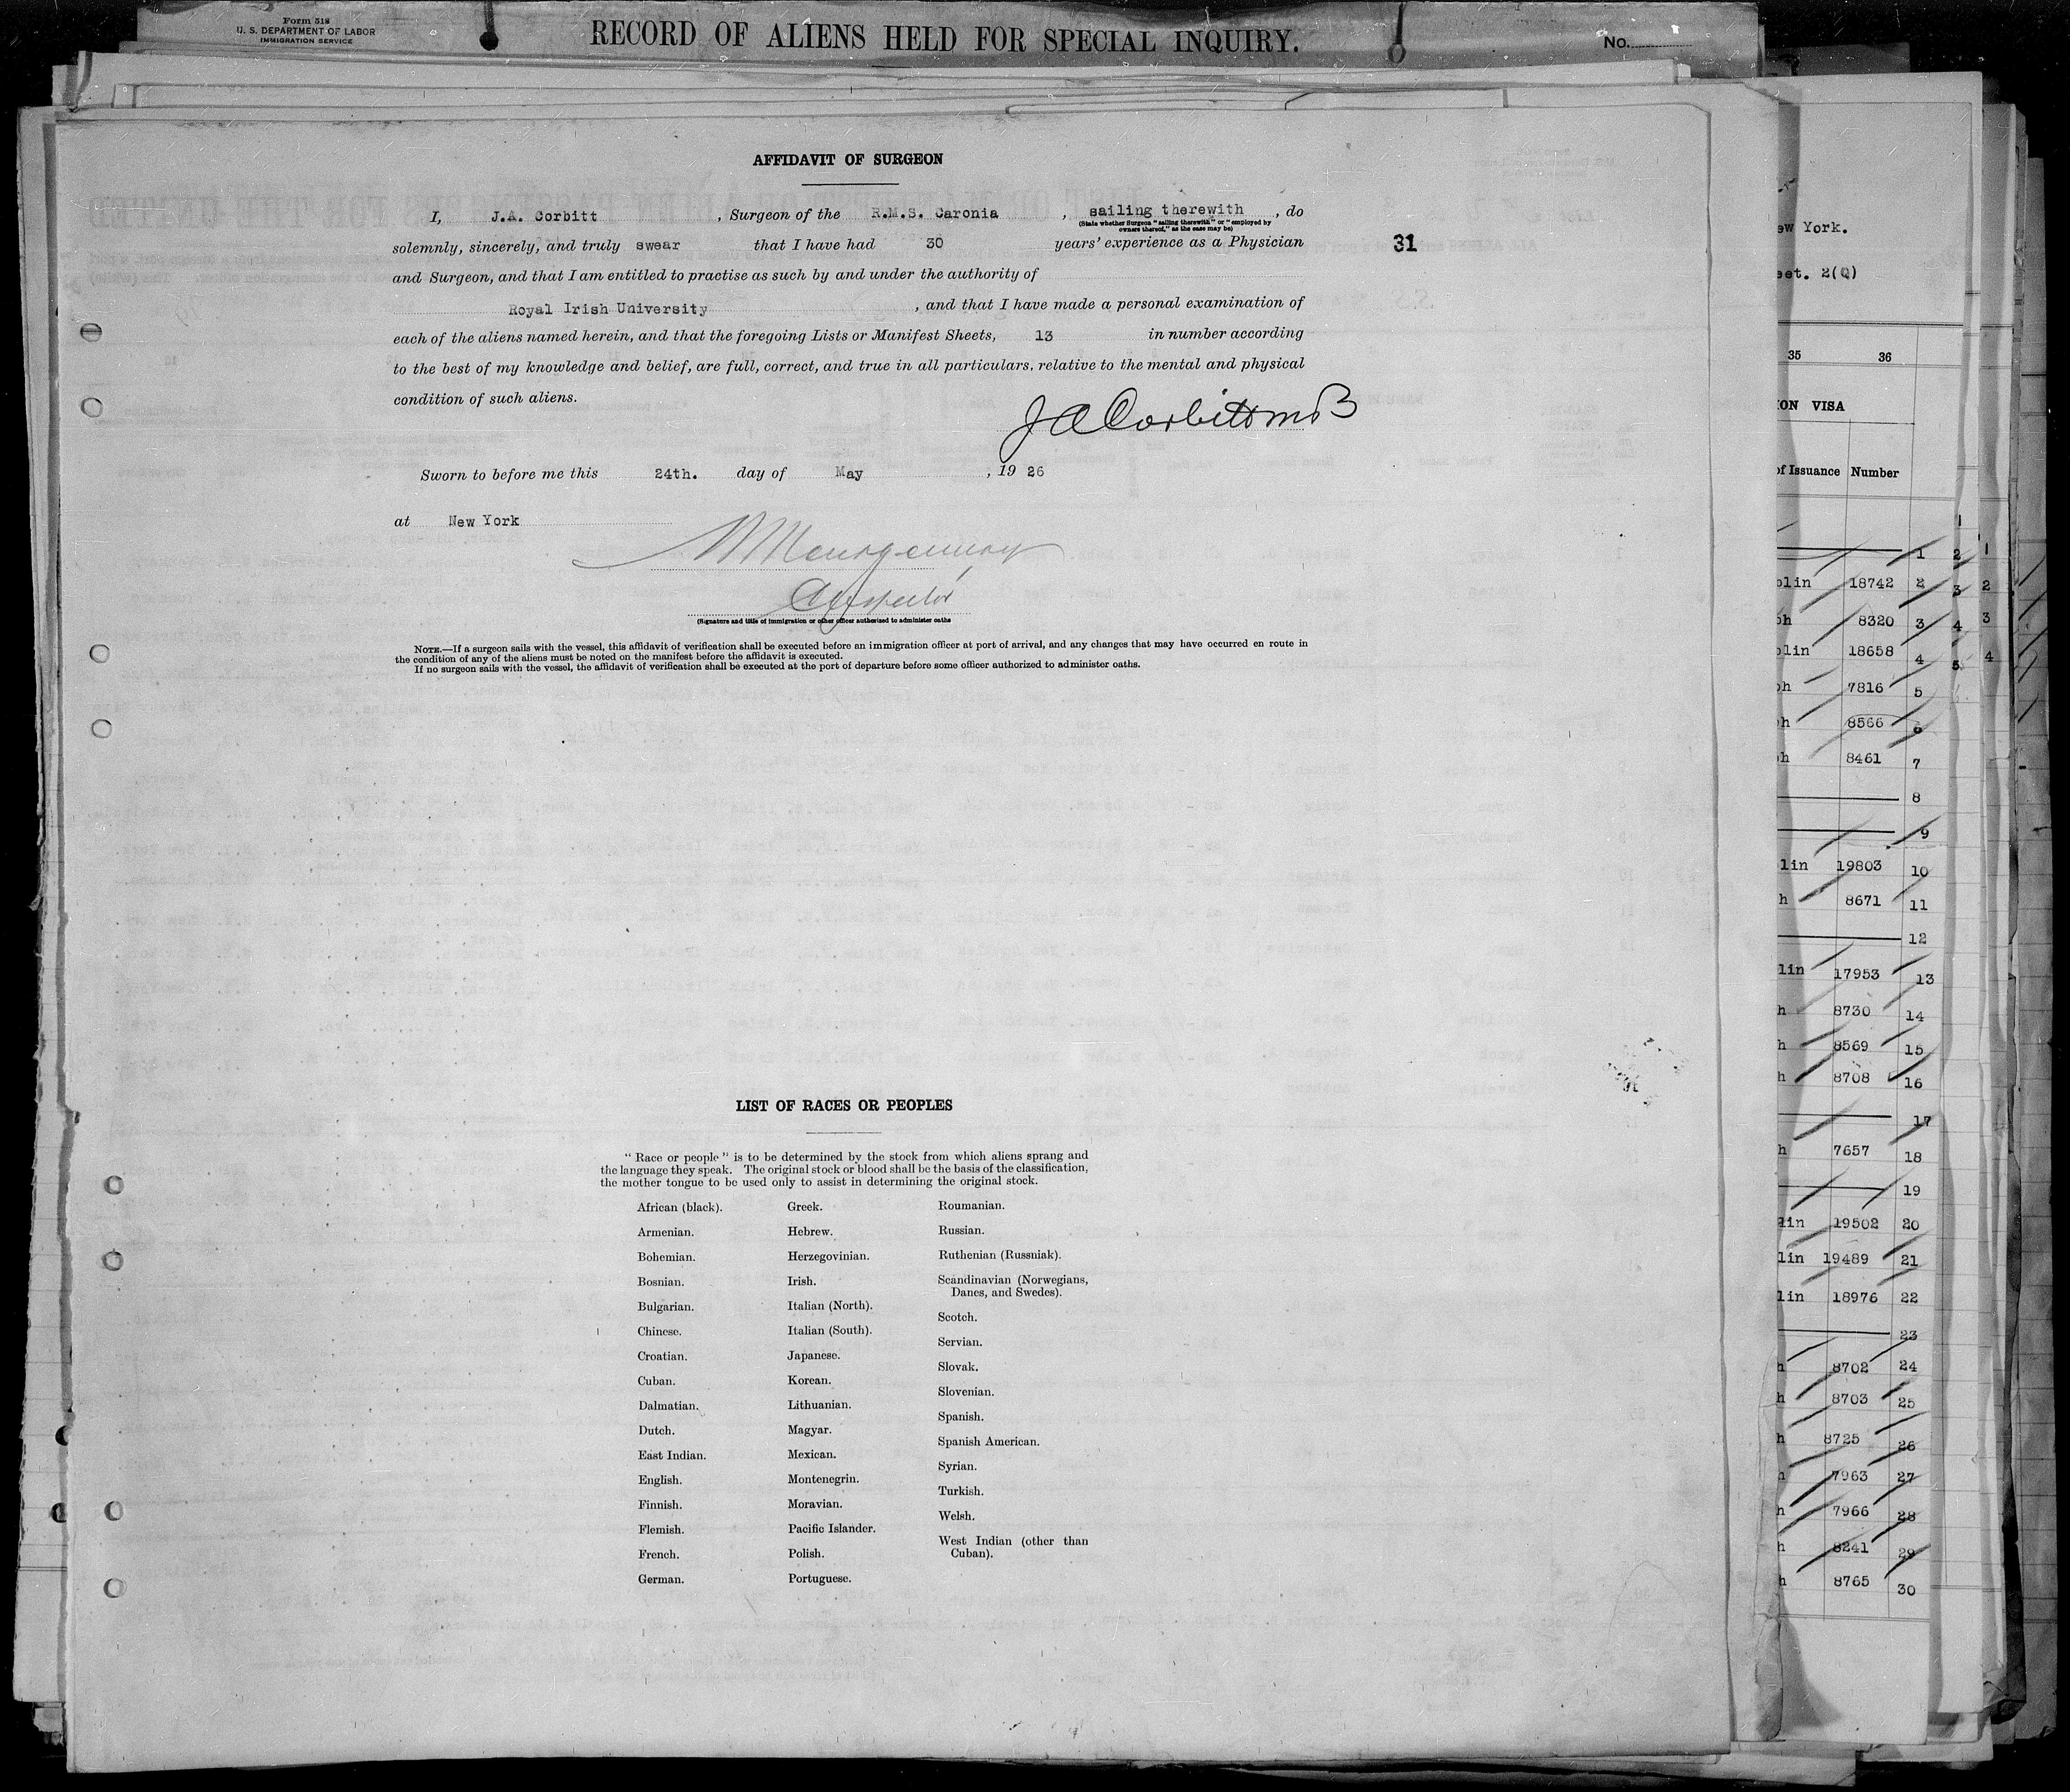 Form 518
U. S. DEPARTMENT OF LABOR
IMMIGRATION SERVICE
RECORD OF ALIENS HELD FOR SPECIAL INQUIRY.
No.
AFFIDAVIT OF SURGEON
I, J.A. Corbitt , Surgeon of the R.M.S. Caronia , sailing therewith , do
(State whether Surgeon "sailing therewith" or "employed by
owners thereof," as the case may be)
solemnly, sincerely, and truly swear that I have had 30 years' experience as a Physician
31
and Surgeon, and that I am entitled to practise as such by and under the authority of
Royal Irish University , and that I have made a personal examination of
each of the aliens named herein, and that the foregoing Lists or Manifest Sheets, 13 in number according
to the best of my knowledge and belief, are full, correct, and true in all particulars, relative to the mental and physical
condition of such aliens.
J A Corbitt MB
Sworn to before me this 24th. day of May , 19 26
at New York
Montgomery
Inspector
(Signature and title of immigration or other officer authorised to administer oaths
NOTE.—If a surgeon sails with the vessel, this affidavit of verification shall be executed before an immigration officer at port of arrival, and any changes that may have occurred en route in
the condition of any of the aliens must be noted on the manifest before the affidavit is executed.
If no surgeon sails with the vessel, the affidavit of verification shall be executed at the port of departure before some officer authorized to administer oaths.
LIST OF RACES OR PEOPLES
"Race or people" is to be determined by the stock from which aliens sprang and
the language they speak. The original stock or blood shall be the basis of the classification,
the mother tongue to be used only to assist in determining the original stock.
African (black).
Armenian.
Bohemian.
Bosnian.
Bulgarian.
Chinese.
Croatian.
Cuban.
Dalmatian.
Dutch.
East Indian.
English.
Finnish.
Flemish.
French.
German.
Greek.
Hebrew.
Herzegovinian.
Irish.
Italian (North).
Italian (South).
Japanese.
Korean.
Lithuanian.
Magyar.
Mexican.
Montenegrin.
Moravian.
Pacific Islander.
Polish.
Portuguese.
Roumanian.
Russian.
Ruthenian (Russniak).
Scandinavian (Norwegians,
Danes, and Swedes).
Scotch.
Servian.
Slovak.
Slovenian.
Spanish.
Spanish American.
Syrian.
Turkish.
Welsh.
West Indian (other than
Cuban).
ew York.
eet. 2(Q)
35 36
ION VISA
of Issuance Number
1
1 2 1
blin 18742 2 3 2
ph 8320 3 4 3
blin 18658 4 5 4
ph 7816 5
ph 8566 6
ph 8461 7
8
9
lin 19803 10
h 8671 11
12
lin 17953 13
h 8730 14
h 8569 15
h 8708 16
17
h 7657 18
19
lin 19502 20
lin 19489 21
lin 18976 22
23
h 8702 24
h 8703 25
h 8725 26
h 7963 27
h 7966 28
h 8241 29
h 8765 30